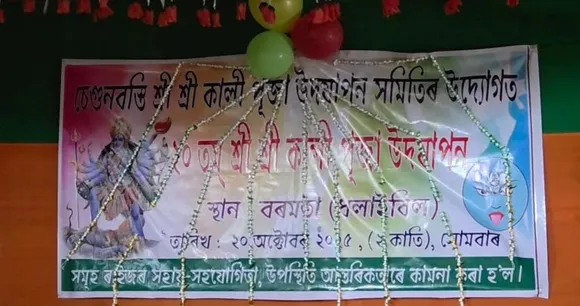 চেগুনবস্তি শ্ৰী শ্ৰী কালী পূজা উদযাপন সমিতিৰ উদ্যোগত
২০ তম্ শ্ৰী শ্ৰী কালী পূজা উদযাপন
স্থান : বৰমজা (ধলাইবিল)
তাৰিখ : ২০ অক্টোবৰ ২০২৫, (২ কাতি), সোমবাৰ
সমূহ ৰাইজৰ সহায়-সহযোগিতা উপস্থিতি আন্তৰিকতাৰে কামনা কৰা হ'ল।